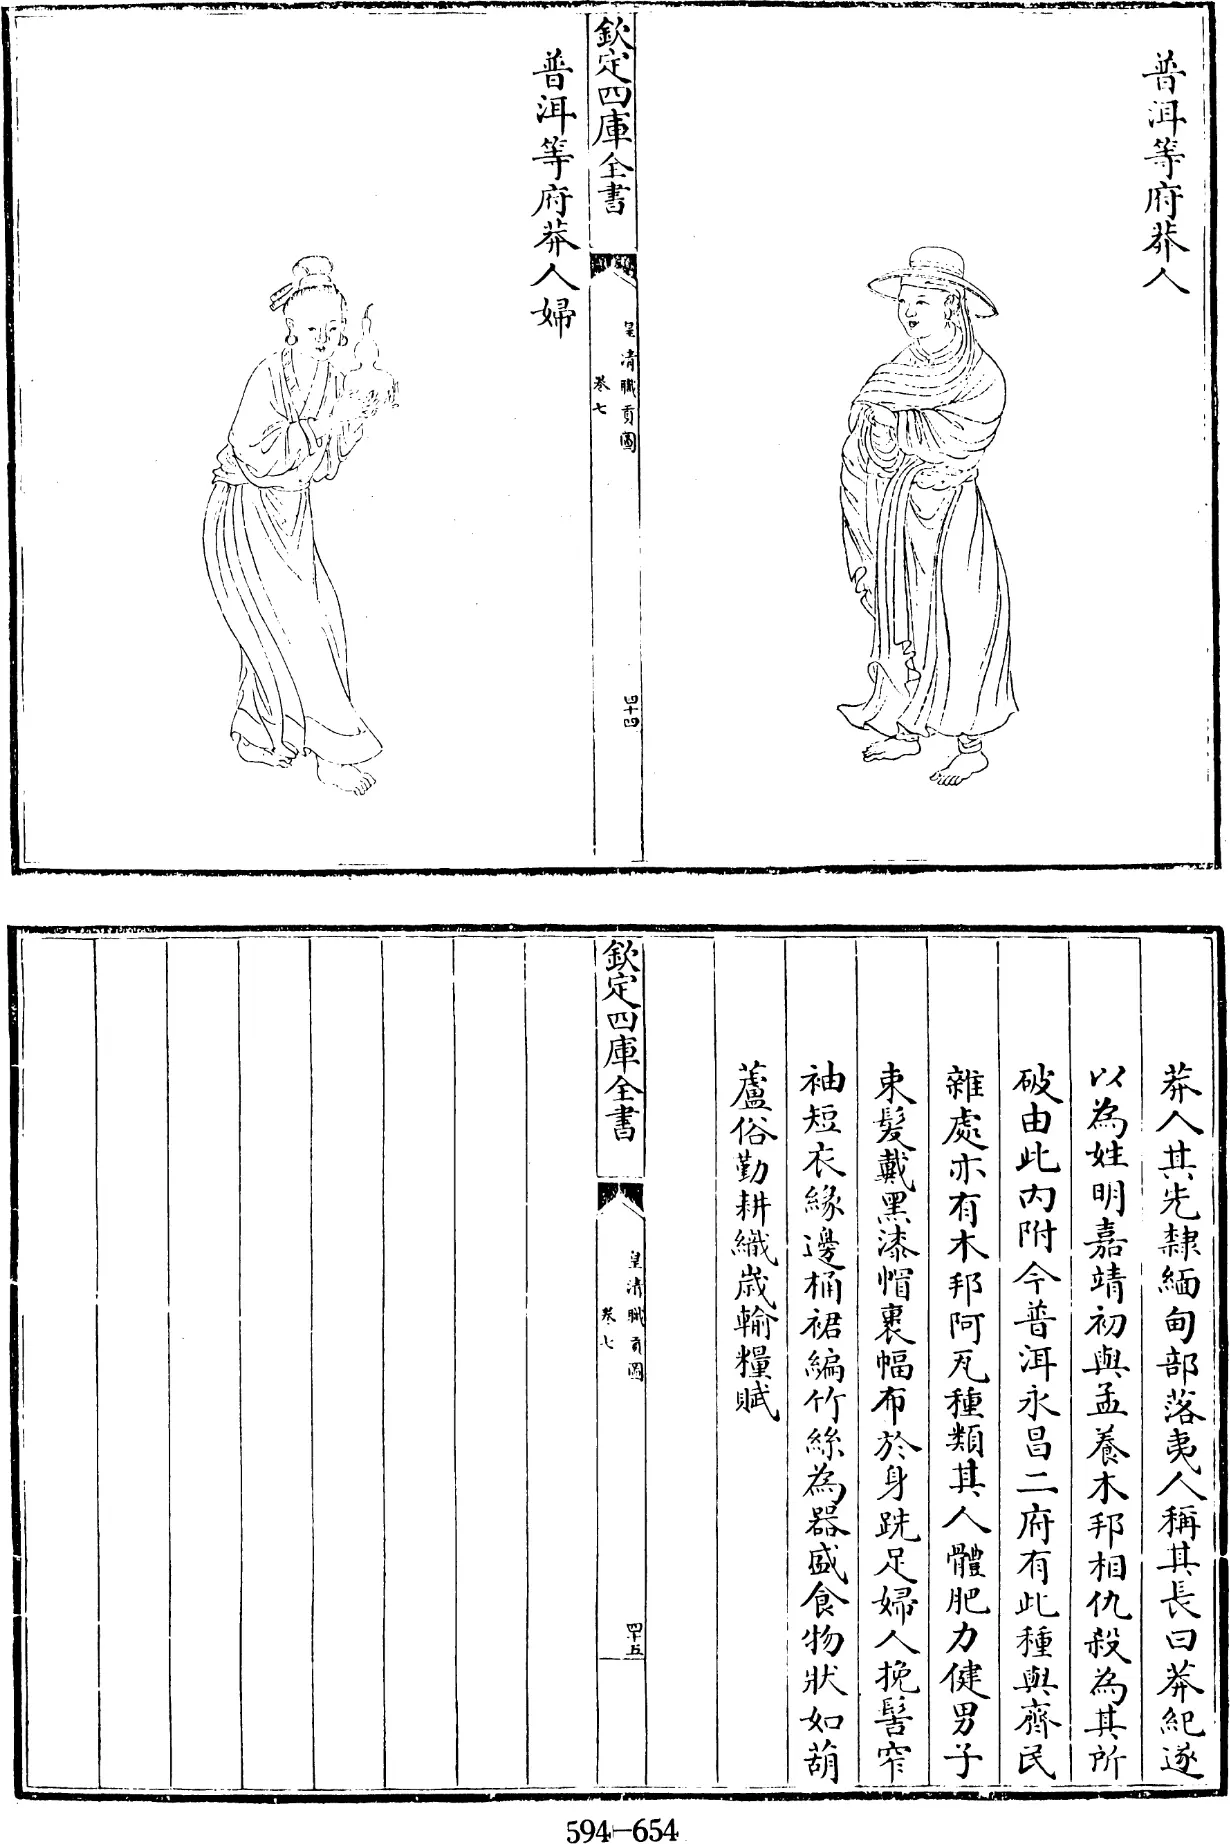 普洱等府莽人
欽定四庫全書
皇清職貢圖
卷七
四十四
普洱等府莽人婦
莽人其先隸緬甸部落夷人稱其長曰莽紀遂
以為姓明嘉靖初與孟養木邦相仇殺為其所
破由此内附今普洱永昌二府有此種與齊民
雜處亦有木邦阿瓦種類其人體肥力健男子
束髮戴黑漆帽裹幅布於身跣足婦人挽髻窄
袖短衣緣邊桶裙編竹絲為器盛食物狀如葫
蘆俗勤耕織歲輸糧賦
欽定四庫全書
皇清職貢圖
卷七
四十五
594-654